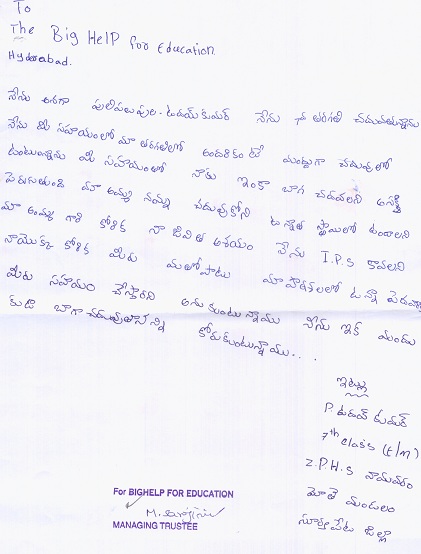 To
The Big Help for Education
Hyderabad.
నేను అనగా పులిపలుపుల. ఉదయ్ కుమార్ నేను 7వ తరగతి చదువుతున్నాను
నేను మీ సహాయంలో మా తరగతిలో అందరికంటే ముందుగా చదువులో
ఉంటున్నాను మీ సహాయంతో నాకు ఇంకా బాగ చదవలని ఆసక్తి
పెరుగుతుంది మా అమ్మ నన్ను చదువుకోని ఉన్నత స్థాయిలో ఉండాలని
మా అమ్మ గారి కోరిక నా జీవిత ఆశయం నేను I.P.S కావలని
నాయొక్క కోరిక మీరు మాతోపాటు మా పాఠశాలలో ఉన్న
మీరు సహాయం చేస్తారని అనుకుంటున్నాము నేను ఇక ముందు
కుడా బాగా చదువుతానని కోరుకుంటున్నాము...
ఇట్లు
P. ఉదయ్ కుమార్
7th class (E/M)
Z.P.H.S నామవరం
మోతె మండలం
సూర్యాపేట జిల్లా
For BIGHELP FOR EDUCATION
MANAGING TRUSTEE